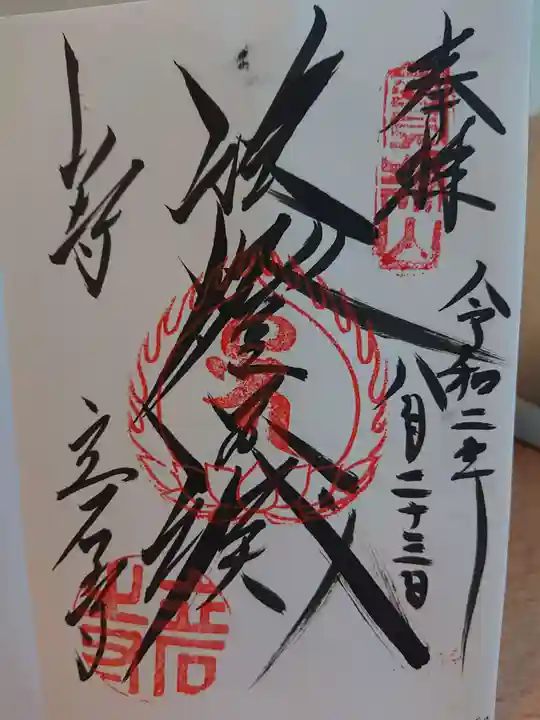 奉拝
令和二年
八月二十三日
法燈不滅
山寺
立石寺